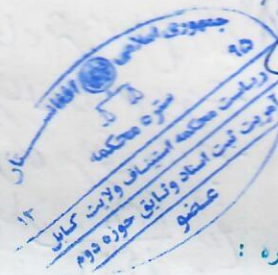 جمهوری اسلامی افغانستان
۹۵
ستره محکمه
ریاست محکمه استیناف ولایت کابل
آمریت ثبت اسناد وثایق حوزه دوم
عضو
۱۳